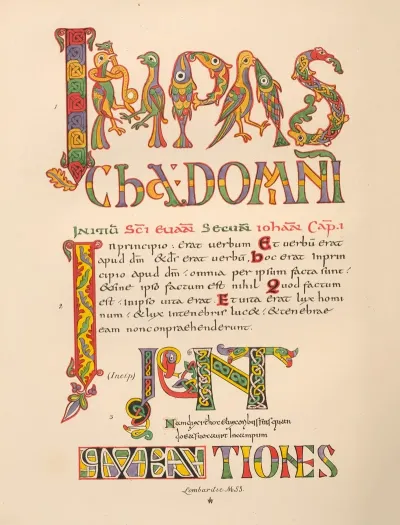 1
INPAS
ChA:DOMN̄I
INITIŪ SC̄I EUAN̄ SECUN̄ IOHAN̄ CAP̄. I
2
In principio : erat uerbum Et uerbū erat
apud dm̄ & ds̄ erat uerbū, hoc erat Inprin
cipio apud dm̄ : omnia per ipsum facta sunt :
& sine ipso factum est nihil Quod factum
est : Inipso uita erat. Et uita erat lyx homi
num : & lyx intenebris luc& : & tenebrae
eam nonconpraehenderunt.
(Incip)
3
TIONES
Lombardic MSS.